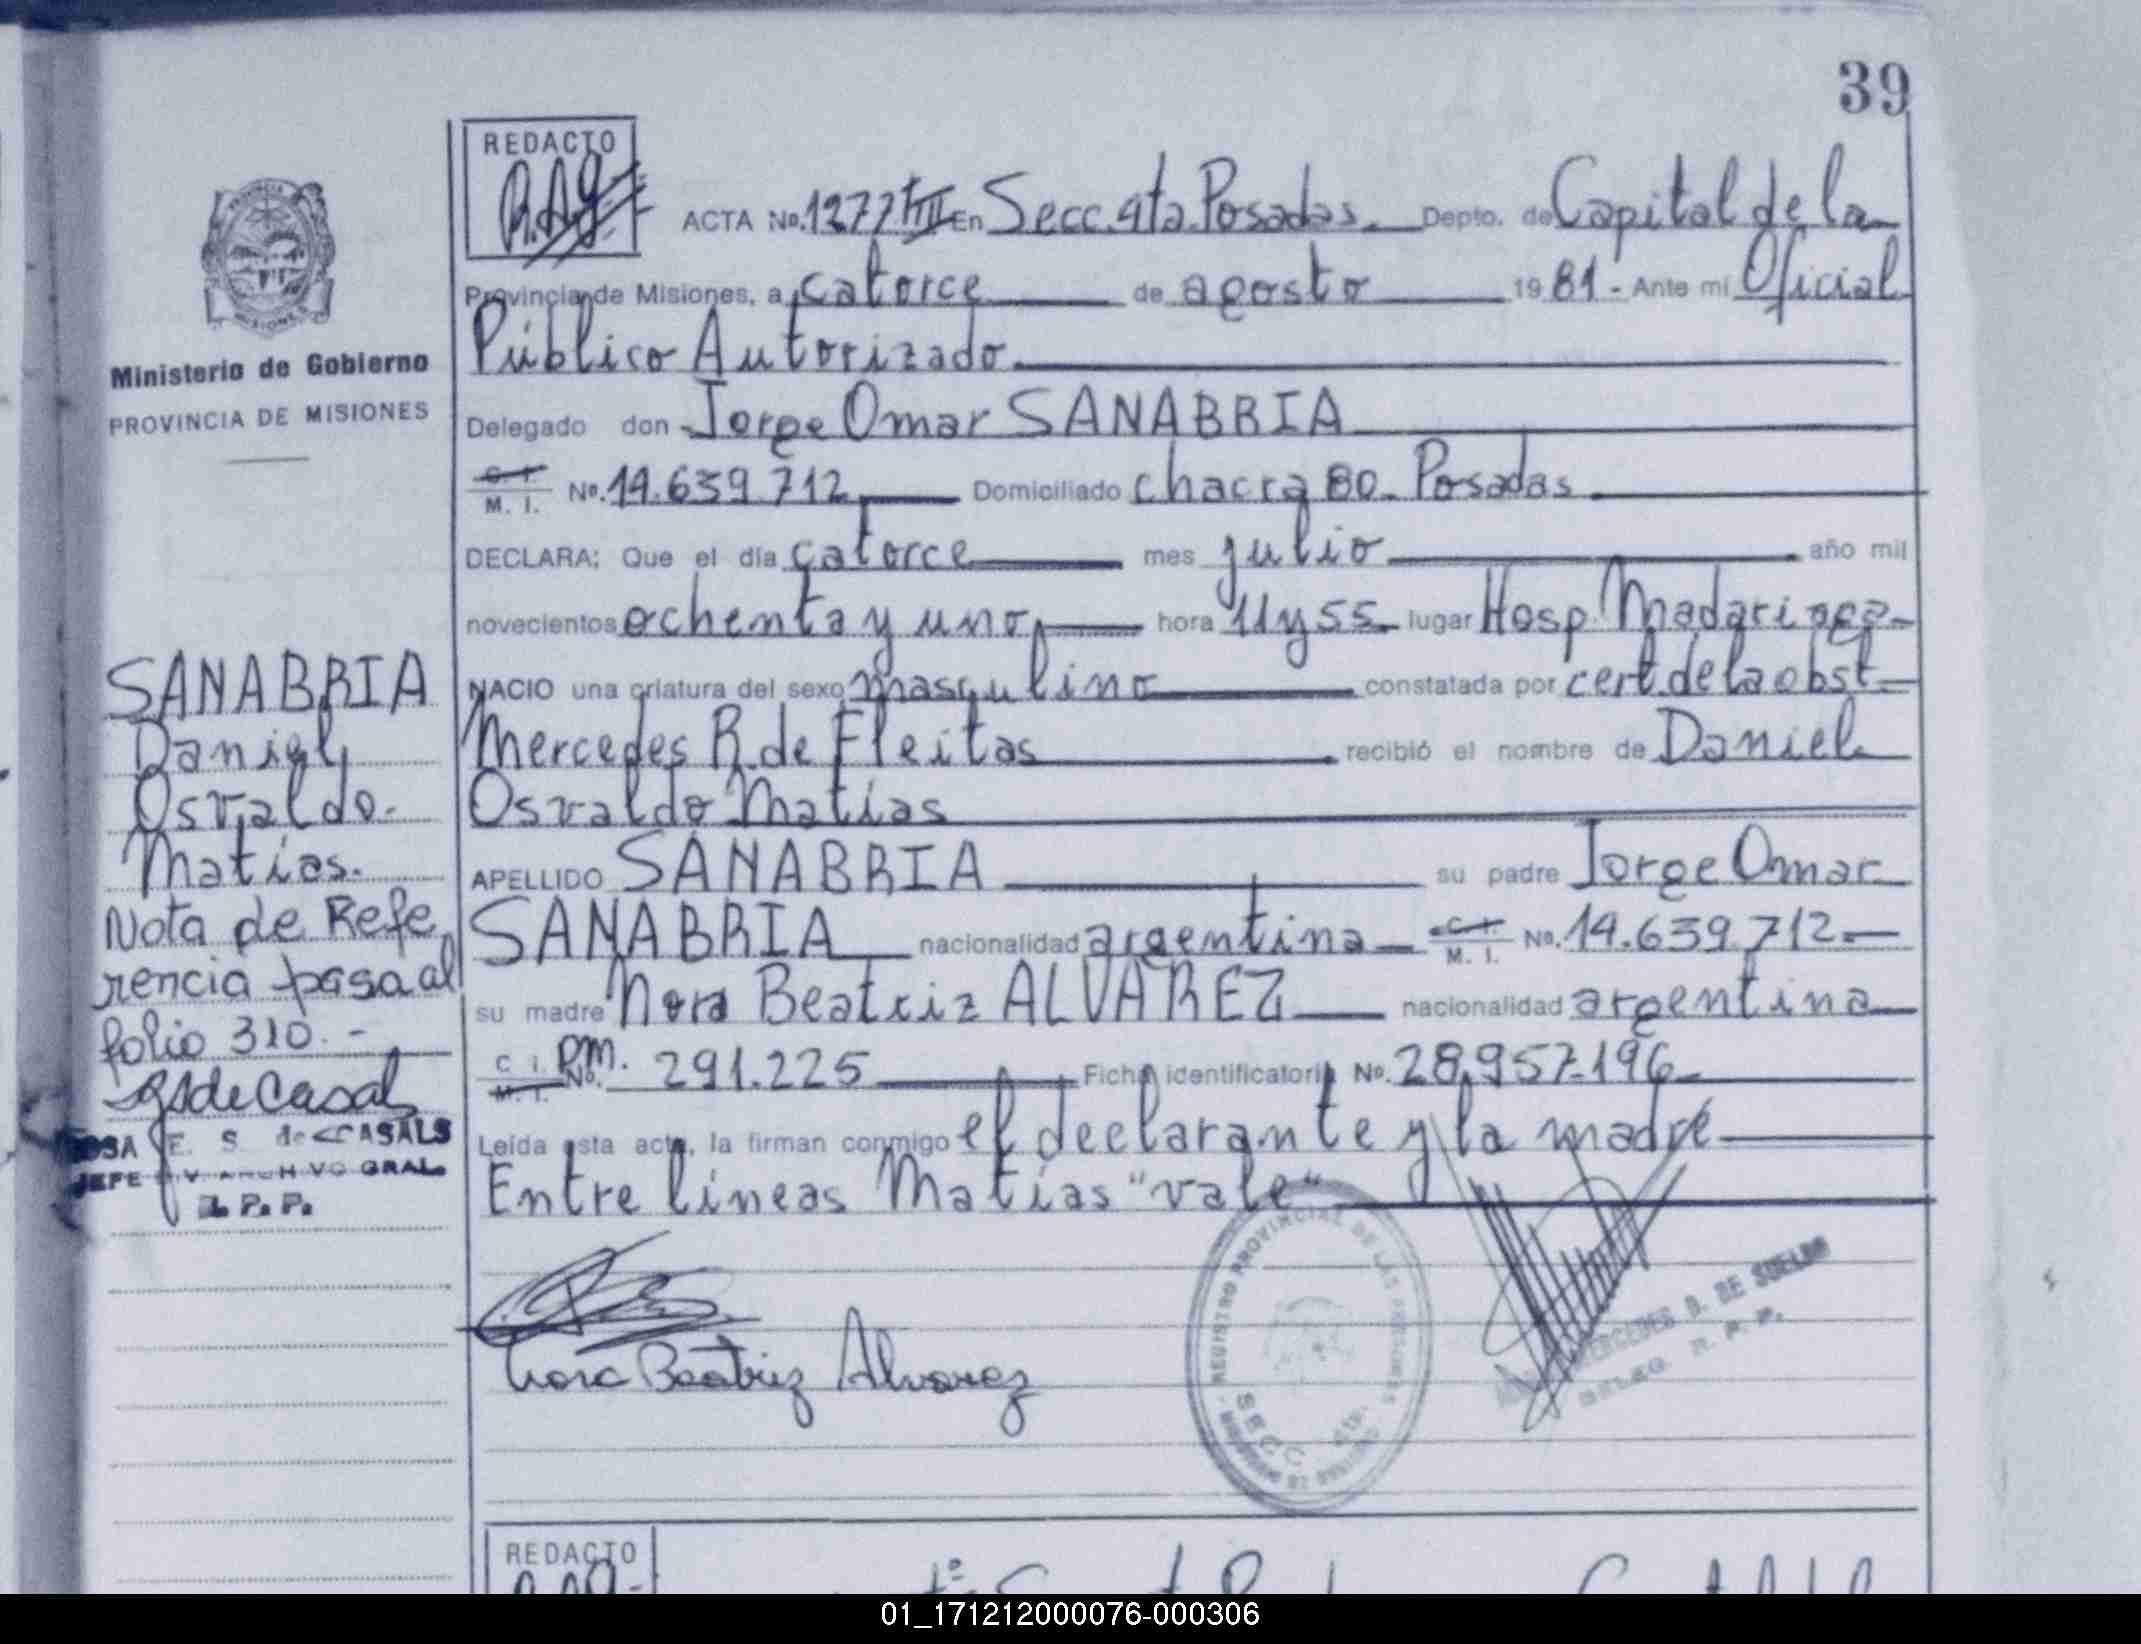 39
REDACTO
ACTA No. 1277 tIII En Secc. 4ta. Posadas. Depto. de Capital de la
Provincia de Misiones, a catorce de agosto 1981 - Ante mí Oficial
Público Autorizado.
Delegado don Jorge Omar SANABRIA
C. I. M. I. No. 14.639.712 Domiciliado chacra 80 - Posadas
DECLARA; Que el día catorce mes julio año mil
novecientos ochenta y uno, hora 11 y 55. lugar Hosp. Madariaga
NACIO una criatura del sexo masculino constatada por cert. de la obst.
Mercedes R. de Fleitas recibió el nombre de Daniel
Osvaldo Matias
APELLIDO SANABRIA su padre Jorge Omar
SANABRIA nacionalidad argentina C. I. M. I. No. 14.639.712
su madre Nora Beatriz ALVAREZ nacionalidad argentina
C. I. M. I. No. DM. 291.225 Ficha identificatoria No. 28.957.196
Leída esta acta, la firman conmigo el declarante y la madre
Entre lineas Matias "vale"
Nora Beatriz Alvarez
REGISTRO PROVINCIAL DE LAS PERSONAS
SECC 4ta.
MERCEDES B. DE SUELDO
DELEG. R. P. P.
PROVINCIA
MISIONES
Ministerio de Gobierno
PROVINCIA DE MISIONES
SANABRIA
Daniel
Osvaldo.
Matias.
Nota de Refe
rencia pasa al
folio 310. -
E. S. de CASALS
JEFE DIV. ARCHIVO GRAL.
R. P. P.
REDACTO
01_171212000076-000306